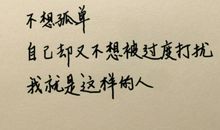 不想孤单
自己却又不想被过度打扰
我就是这样的人